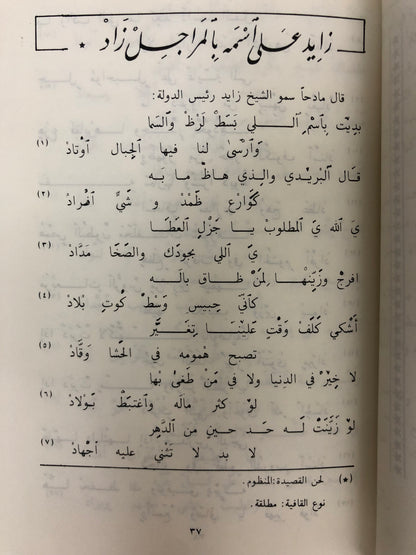 زايد على ٱسمه بالمراجل زاد *
قال مادحاً سمو الشيخ زايد رئيس الدولة:
بديت بٱسم ٱللي بسط لرظ والسما
وارسى لنا فيها الجبال اوتاد (١)
قال البريدي والذي هاظ ما به
كوارع ظمد و شي افراد (٢)
ي الله ي المطلوب يا جزل العطا
ي اللي بجودك والصخا مداد (٣)
افرج وزينها لمن ظاق باله
كاني حبيس وسط كوت بلاد (٤)
أشكي كلف وقت علينا تغير
تصبح همومه في الحشا وقاد (٥)
لا خير في الدنيا ولا في من طغى بها
لو كثر ماله واغتبط بولاد (٦)
لو زينت له حد حين من الدهر
لا بد لا تثني عليه اجهاد (٧)
(*) لحن القصيدة: المنظوم.
نوع القافية: مطلقة.
٣٧